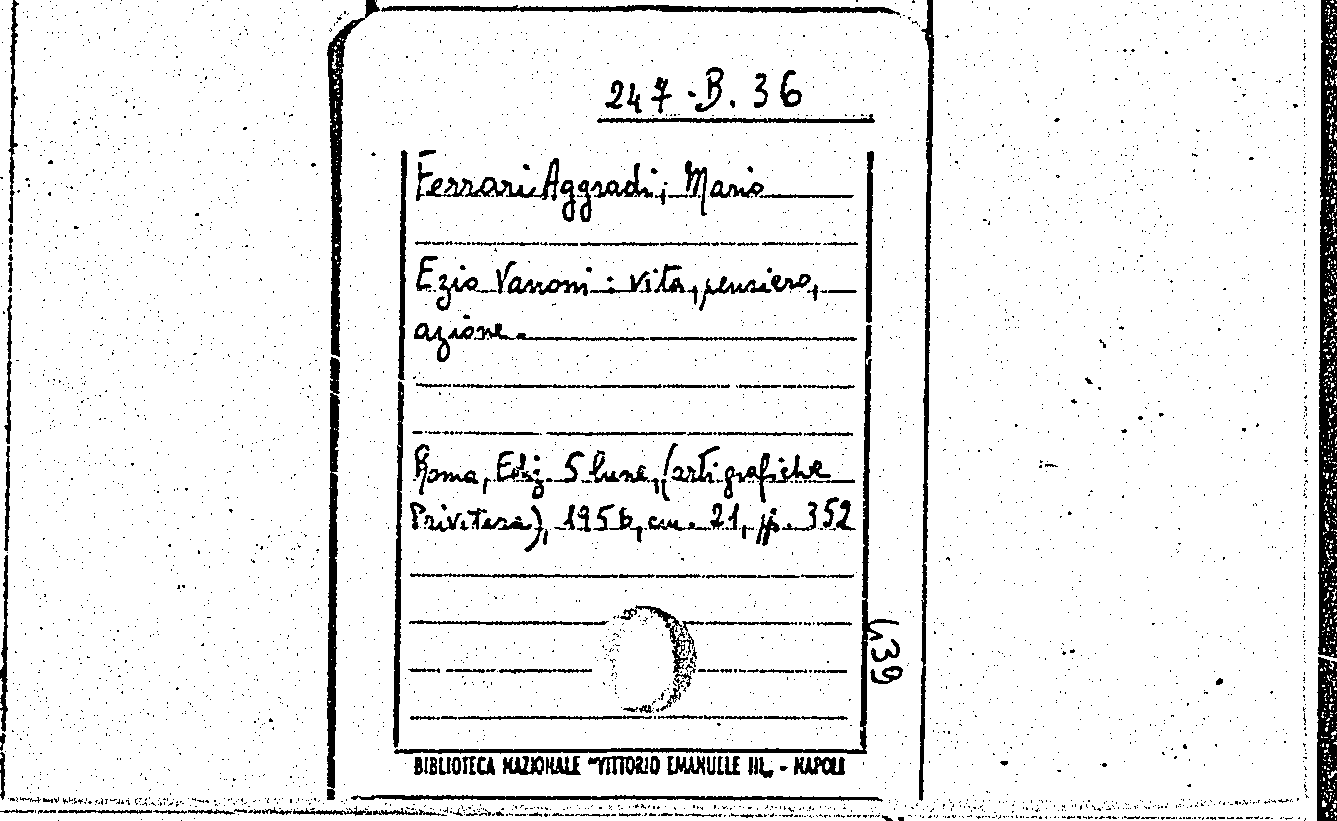 247 - B. 36
Ferrari Aggradi, Mario
Ezio Vanoni : vita, pensiero,
azione.
Roma, Ediz. 5 lune, (arti grafiche
Privitera), 1956, cm. 21, pp. 352
439
BIBLIOTECA NAZIONALE "VITTORIO EMANUELE III„ - NAPOLI